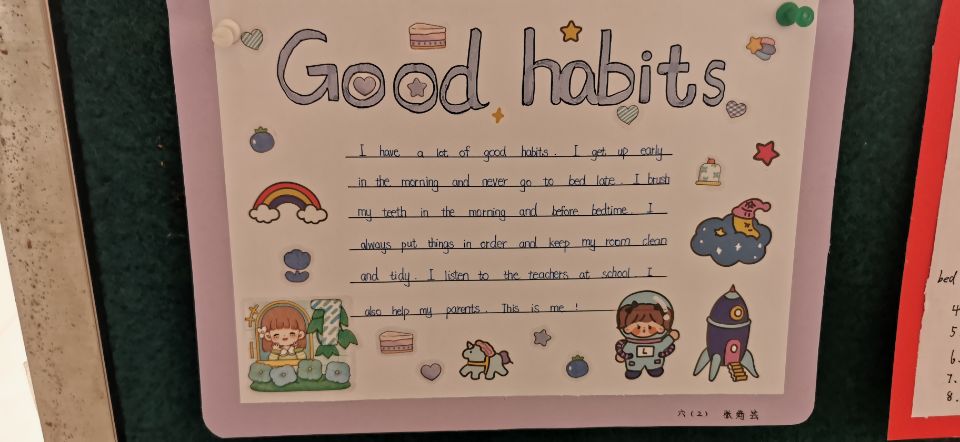 Good habits
I have a lot of good habits. I get up early
in the morning and never go to bed late. I brush
my teeth in the morning and before bedtime. I
always put things in order and keep my room clean
and tidy. I listen to the teachers at school. I
also help my parents. This is me!
L
六(2) 张
bed
4
5
6.
7.
8.